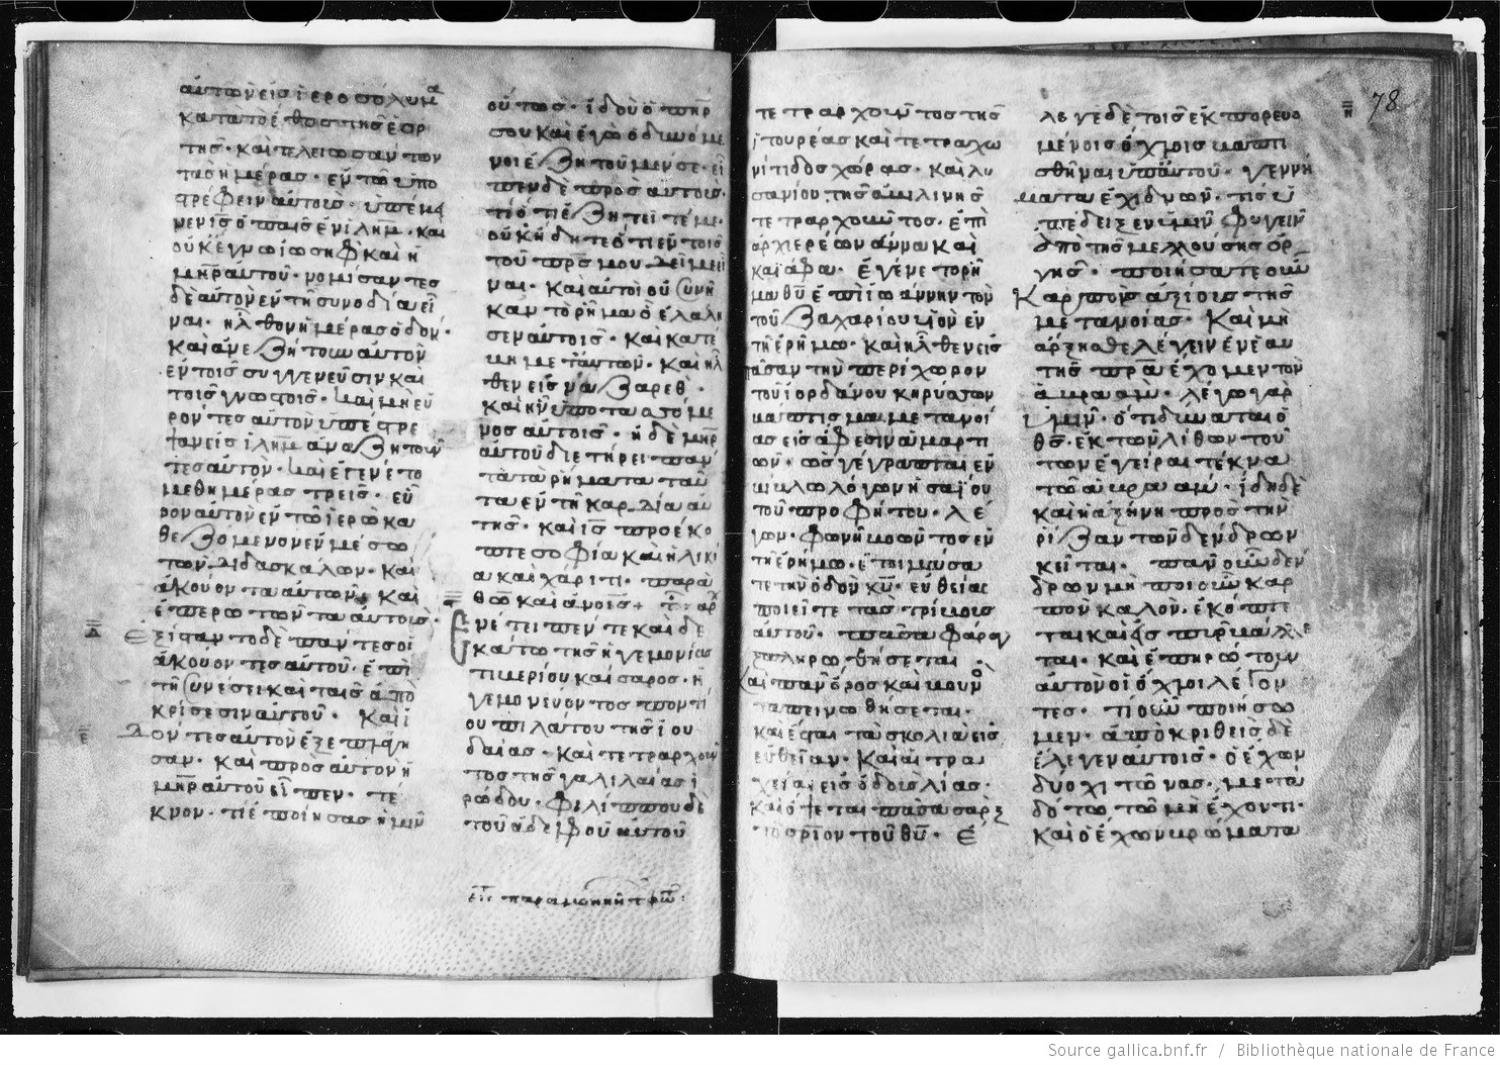 αὐτῶν εἰς ἱεροσόλυμα
κατὰ τὸ ἔθος τῆς ἑορ
τῆς· καὶ τελειωσάντων
τὰς ἡμέρας· ἐν τῶ ὑπο
στρέφειν αὐτοὺς· ὑπέμει
νεν ις ὁ παῖς ἐν ιλημ· και
οὐκ ἔγνω ἰωσὴφ καὶ ἡ
μηρ αὐτοῦ· νομίσαντες
δὲ αὐτὸν ἐν τῆ συνοδία εἶ
ναι· ἦλθον ἡμέρας ὁδόν·
καὶ ἀνεζήτουν αὐτὸν
ἐν τοῖς συγγενεῦσιν καὶ
τοῖς γνωστοῖς· καὶ μὴ εὑ
ρόντες αὐτὸν ὑπέστρε
ψαν εἰς ιλημ ἀναζητοῦν
τες αὐτόν· καὶ ἐγένετο
μεθ ἡμέρας τρεῖς· εὗ
ρον αὐτὸν ἐν τῶ ἱερῶ κα
θεζόμενον ἐν μέσω
τῶν διδασκάλων· καὶ
ἀκούοντα αὐτῶν· καὶ
ἐπερωτῶντα αὐτούς·
Δ ἐξίσταντο δὲ πάντες οἱ
ἀκούοντες αὐτοῦ· ἐπὶ
τῆ συνέσει καὶ ταῖς ἀπο
κρίσεσιν αὐτοῦ· Καὶ ἰ
Ε δόντες αὐτὸν ἐξεπλάγη
σαν· καὶ πρὸς αὐτὸν ἡ
μηρ αὐτοῦ εἶπεν· τέ
κνον· τί ἐποίησας ἡμῖν
οὕτως· ἰδοὺ ὁ πηρ
σου καὶ ἐγὼ ὀδυνόμε
νοι ἐζητοῦμέν σε· εἶ
πεν δὲ πρὸς αὐτούς·
τί ὅτι ἐζητεῖτέ με·
οὐκ ἤδητε ὅτι ἐν τοῖς
τοῦ πρς μου δεῖ με εἶ
ναι· καὶ αὐτοὶ οὐ συνῆ
καν τὸ ρῆμα ὃ ἐλάλη
σεν αὐτοῖς· καὶ κατέ
βη μετ αὐτῶν· καὶ ἦλ
θεν εἰς ναζαρέθ·
καὶ ἦν ὑποτασσόμε
νος αὐτοῖς· ἡ δὲ μηρ
αὐτοῦ διετήρει πάν
τα τὰ ρήματα ταῦ
τα ἐν τῆ καρδία αὐ
τῆς· καὶ ις προέκο
πτε σοφία καὶ ἡλικί
α καὶ χάριτι· παρὰ
θω καὶ ἀνοις+
Ἐν ἔτει πεντεκαιδε
κάτω τῆς ἡγεμονίας
τιβερίου καίσαρος· ἡ
γεμονεύοντος ποντί
ου πιλάτου τῆς ἰου
δαίας· καὶ τετραρχοῦν
τος τῆς γαλιλαίας ἡ
ρώδου· φιλίππου δὲ
τοῦ ἀδελφοῦ αὐτοῦ
παραμονὴν τ φώ
Η 78
τετραρχοῦντος τῆς
ἰτουρέας καὶ τετραχω
νίτιδος χώρας· καὶ λυ
σανίου τῆς ἀβιλινῆς
τετραρχοῦντος· ἐπὶ
ἀρχιερέων ἄννα καὶ
καϊάφα· ἐγένετο ρῆ
μα θυ ἐπὶ ἰωάννην τὸν
τοῦ ζαχαρίου υἱὸν ἐν
τῆ ἐρήμω· καὶ ἦλθεν εἰς
πᾶσαν τὴν περίχωρον
τοῦ ἰορδάνου κηρύσσων
βάπτισμα μετανοί
ας εἰς ἄφεσιν ἁμαρτι
ῶν· ὡς γέγραπται ἐν
βίβλω λόγων ἡσαΐου
τοῦ προφήτου· λέ
γων· φωνὴ βοῶντος ἐν
τῆ ἐρήμω· ἑτοιμάσα
τε τὴν ὁδὸν κυ· εὐθείας
ποιεῖτε τὰς τρίβους
αὐτοῦ· πᾶσα φάραγξ
πληρωθήσεται·
καὶ πᾶν ὄρος καὶ βουνὸς
ταπεινωθήσεται·
καὶ ἔσται τὰ σκολιὰ εἰς
εὐθεῖαν· Καὶ αἱ τρα
χεῖαι εἰς ὁδοὺς λίας·
καὶ ὄψεται πᾶσα σὰρξ
τὸ σριον τοῦ θυ· Ἔ
λεγε δὲ τοῖς ἐκπορευο
μένοις ὄχλοις βαπτι
σθῆναι ὑπ αὐτοῦ· γεννή
ματα ἐχιδνῶν· τίς ὑ
πέδειξεν ὑμῖν φυγεῖν
ἀπὸ τῆς μελλούσης ὀρ
γῆς· ποιήσατε οὖν
Καρποὺς ἀξίους τῆς
μετανοίας· Καὶ μὴ
ἄρξησθε λέγειν ἐν ἑαυ
τοῖς πρα ἔχομεν τὸν
ἀβραάμ· λέγω γὰρ
ὑμῖν· ὅτι δύναται ὁ
θς· ἐκ τῶν λίθων τού
των ἐγεῖραι τέκνα
τῶ ἀβραάμ· ἤδη δὲ
καὶ ἡ ἀξίνη πρὸς τὴν
ρίζαν τῶν δένδρων
κεῖται· πᾶν οὖν δέν
δρων μὴ ποιοῦν καρ
πὸν καλὸν· ἐκόπτε
ται καὶ εἰς πῦρ βάλλε
ται· καὶ ἐπηρώτουν
αὐτὸν οἱ ὄχλοι λέγον
τες· τί οὖν ποιήσω
μεν· ἀποκριθεὶς δὲ
ἔλεγεν αὐτοῖς· ὁ ἔχων
δύο χιτῶνας· μεταδό
δότω τῶ μὴ ἔχοντι·
καὶ ὁ ἔχων βρώματα
Source gallica.bnf.fr / Bibliothèque nationale de France